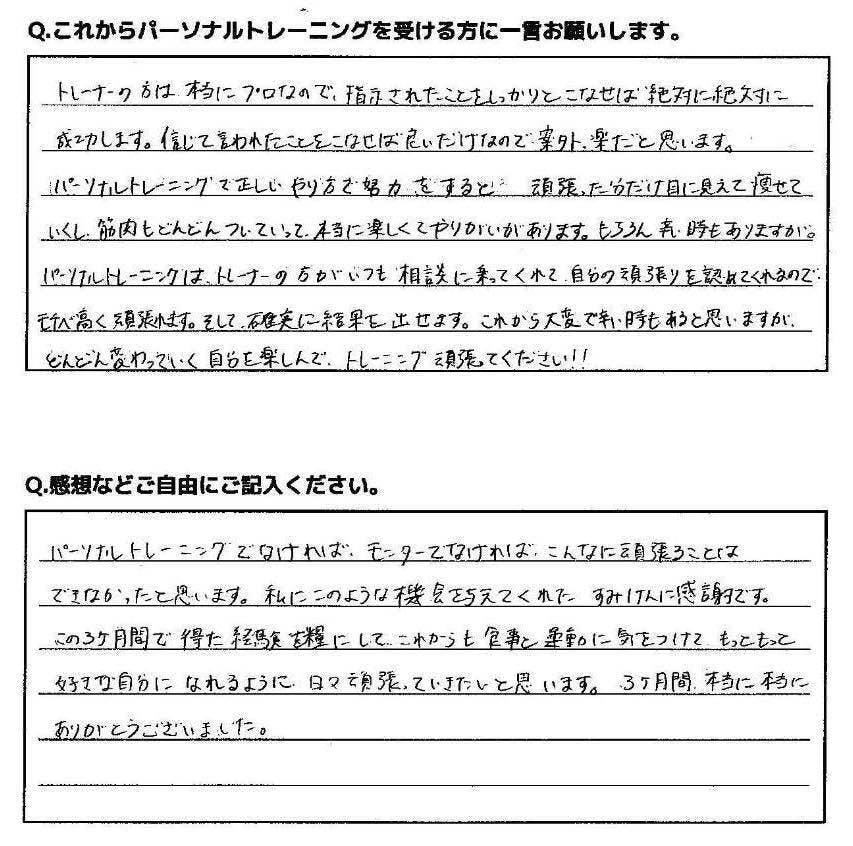 Q.これからパーソナルトレーニングを受ける方に一言お願いします。
トレーナーの方は本当にプロなので、指示されたことをしっかりとこなせば絶対に絶対に
成功します。信じて言われたことをこなせば良いだけなので案外、楽だと思います。
パーソナルトレーニングで正しいやり方で努力をすると 頑張った分だけ目に見えて痩せて
いくし、筋肉もどんどんついていって、本当に楽しくてやりがいがあります。もちろん辛い時もありますが。
パーソナルトレーニングは、トレーナーの方がいつも相談に乗ってくれて、自分の頑張りを認めてくれるので、
モチベ高く頑張れます。そして、確実に結果を出せます。これから大変で辛い時もあると思いますが、
どんどん変わっていく自分を楽しんで、トレーニング頑張ってください!!
Q.感想などご自由にご記入ください。
パーソナルトレーニングでなければ、モニターでなければ、こんなに頑張ることは
できなかったと思います。私にこのような機会を与えてくれた すみけんに感謝です。
この3ヶ月間で得た経験を糧にして、これからも食事と運動に気をつけて もっともっと
好きな自分になれるように、日々頑張っていきたいと思います。3ヶ月間、本当に本当に
ありがとうございました。